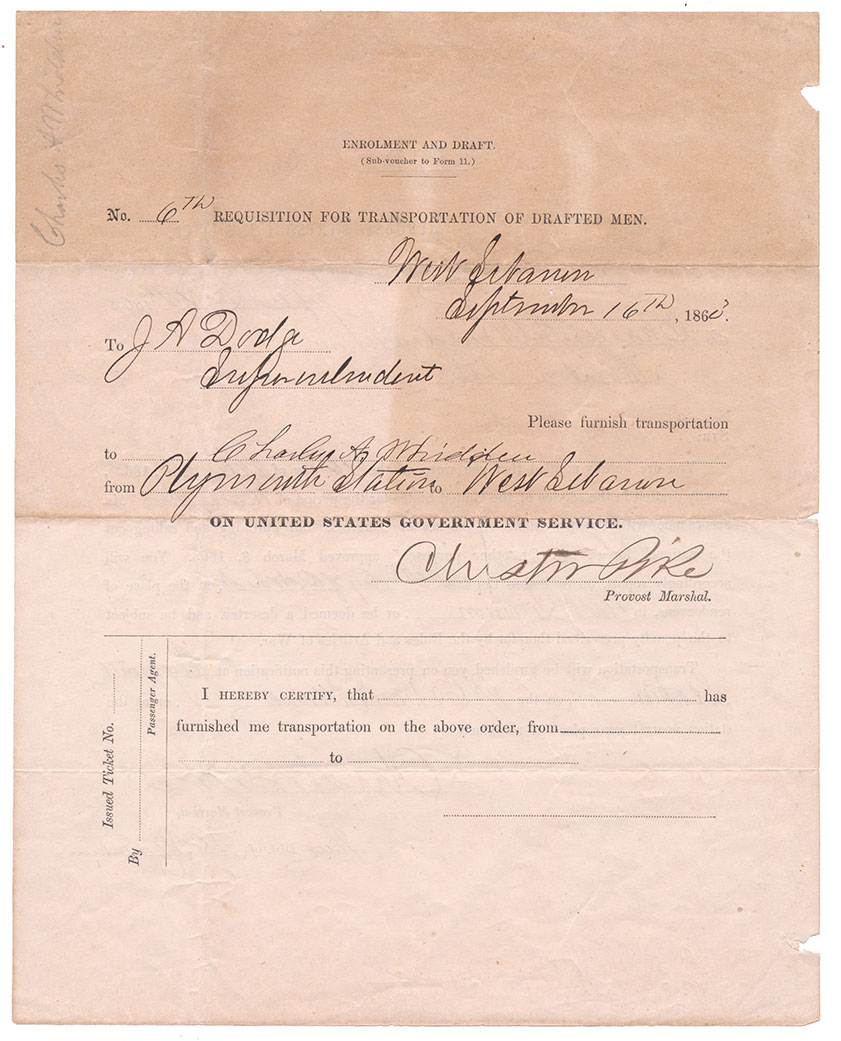 Charles A Whidden
ENROLMENT AND DRAFT.
(Sub-voucher to Form 11.)
No. 6TH REQUISITION FOR TRANSPORTATION OF DRAFTED MEN.
West Lebanon
September 16TH, 1863.
To J A Dodge
Superintendent
Please furnish transportation
to Charles A Whidden
from Plymouth Station to West Lebanon
ON UNITED STATES GOVERNMENT SERVICE.
Chester Pike
Provost Marshal.
Issued Ticket No.
By
Passenger Agent.
I HEREBY CERTIFY, that has
furnished me transportation on the above order, from
to